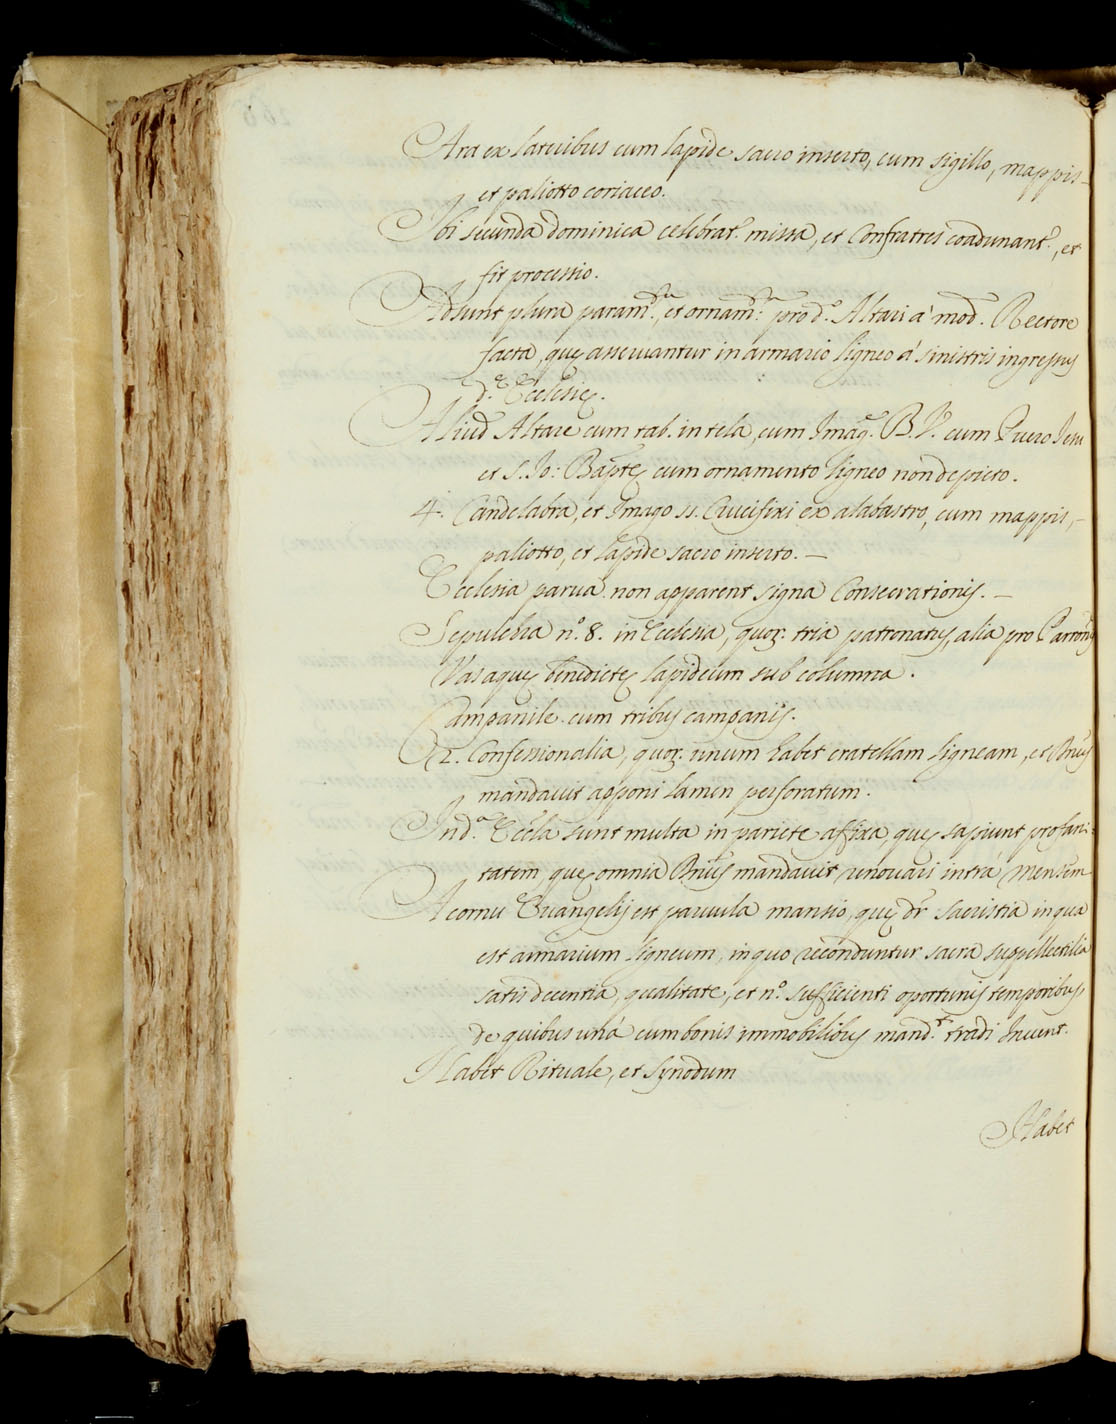 Ara ex lateribus cum lapide sacro inserto, cum sigillo, mappis
et paliotto coriaceo.
Ibi secunda dominica celebrat. missa, et Confratres coadunant., et
fit processio.
Adsunt plura param.ta, et ornam.ta pro d.o Altari à mod. Rectore
facta, quę asservantur in armario ligneo à sinistris ingressus
d.ę Ecclesię.
Aliud Altare cum tab. in tela, cum Imag.e B. V. cum Puero Jesu
et S. Jo: Bap̃tę cum ornamento ligneo non depicto.
4. Candelabra, et Imago SS. Crucifixi ex alabastro, cum mappis,
paliotto, et lapide sacro inserto. —
Ecclesia parva non apparent signa Consecrationis. —
Sepulchra n.o 8. in Ecclesia, quoꝝ. tria patronatus, alia pro
Vas aquę benedictę lapideum sub columna.
Campanile cum tribus campanis.
2. Confessionalia, quoꝝ. unum habet cratellam ligneam, et Dñus
mandavit apponi lamen perforatum.
In d.a Eccla sunt multa in pariete afixa, quę sapiunt profani-
tatem, quę omnia Dñus mandavit removari intrà mensem
A cornu Evangelij est parvula mansio, quę dr̃ sacristia in qua
est armarium ligneum, in quo reconduntur sacra suppellectilia
satis decentia, qualitate, et n.o sufficienti oportunis temporibus,
de quibus unà cum bonis immobilibus mand.t tradi Invent.
Habet Rituale, et Synodum
Habet